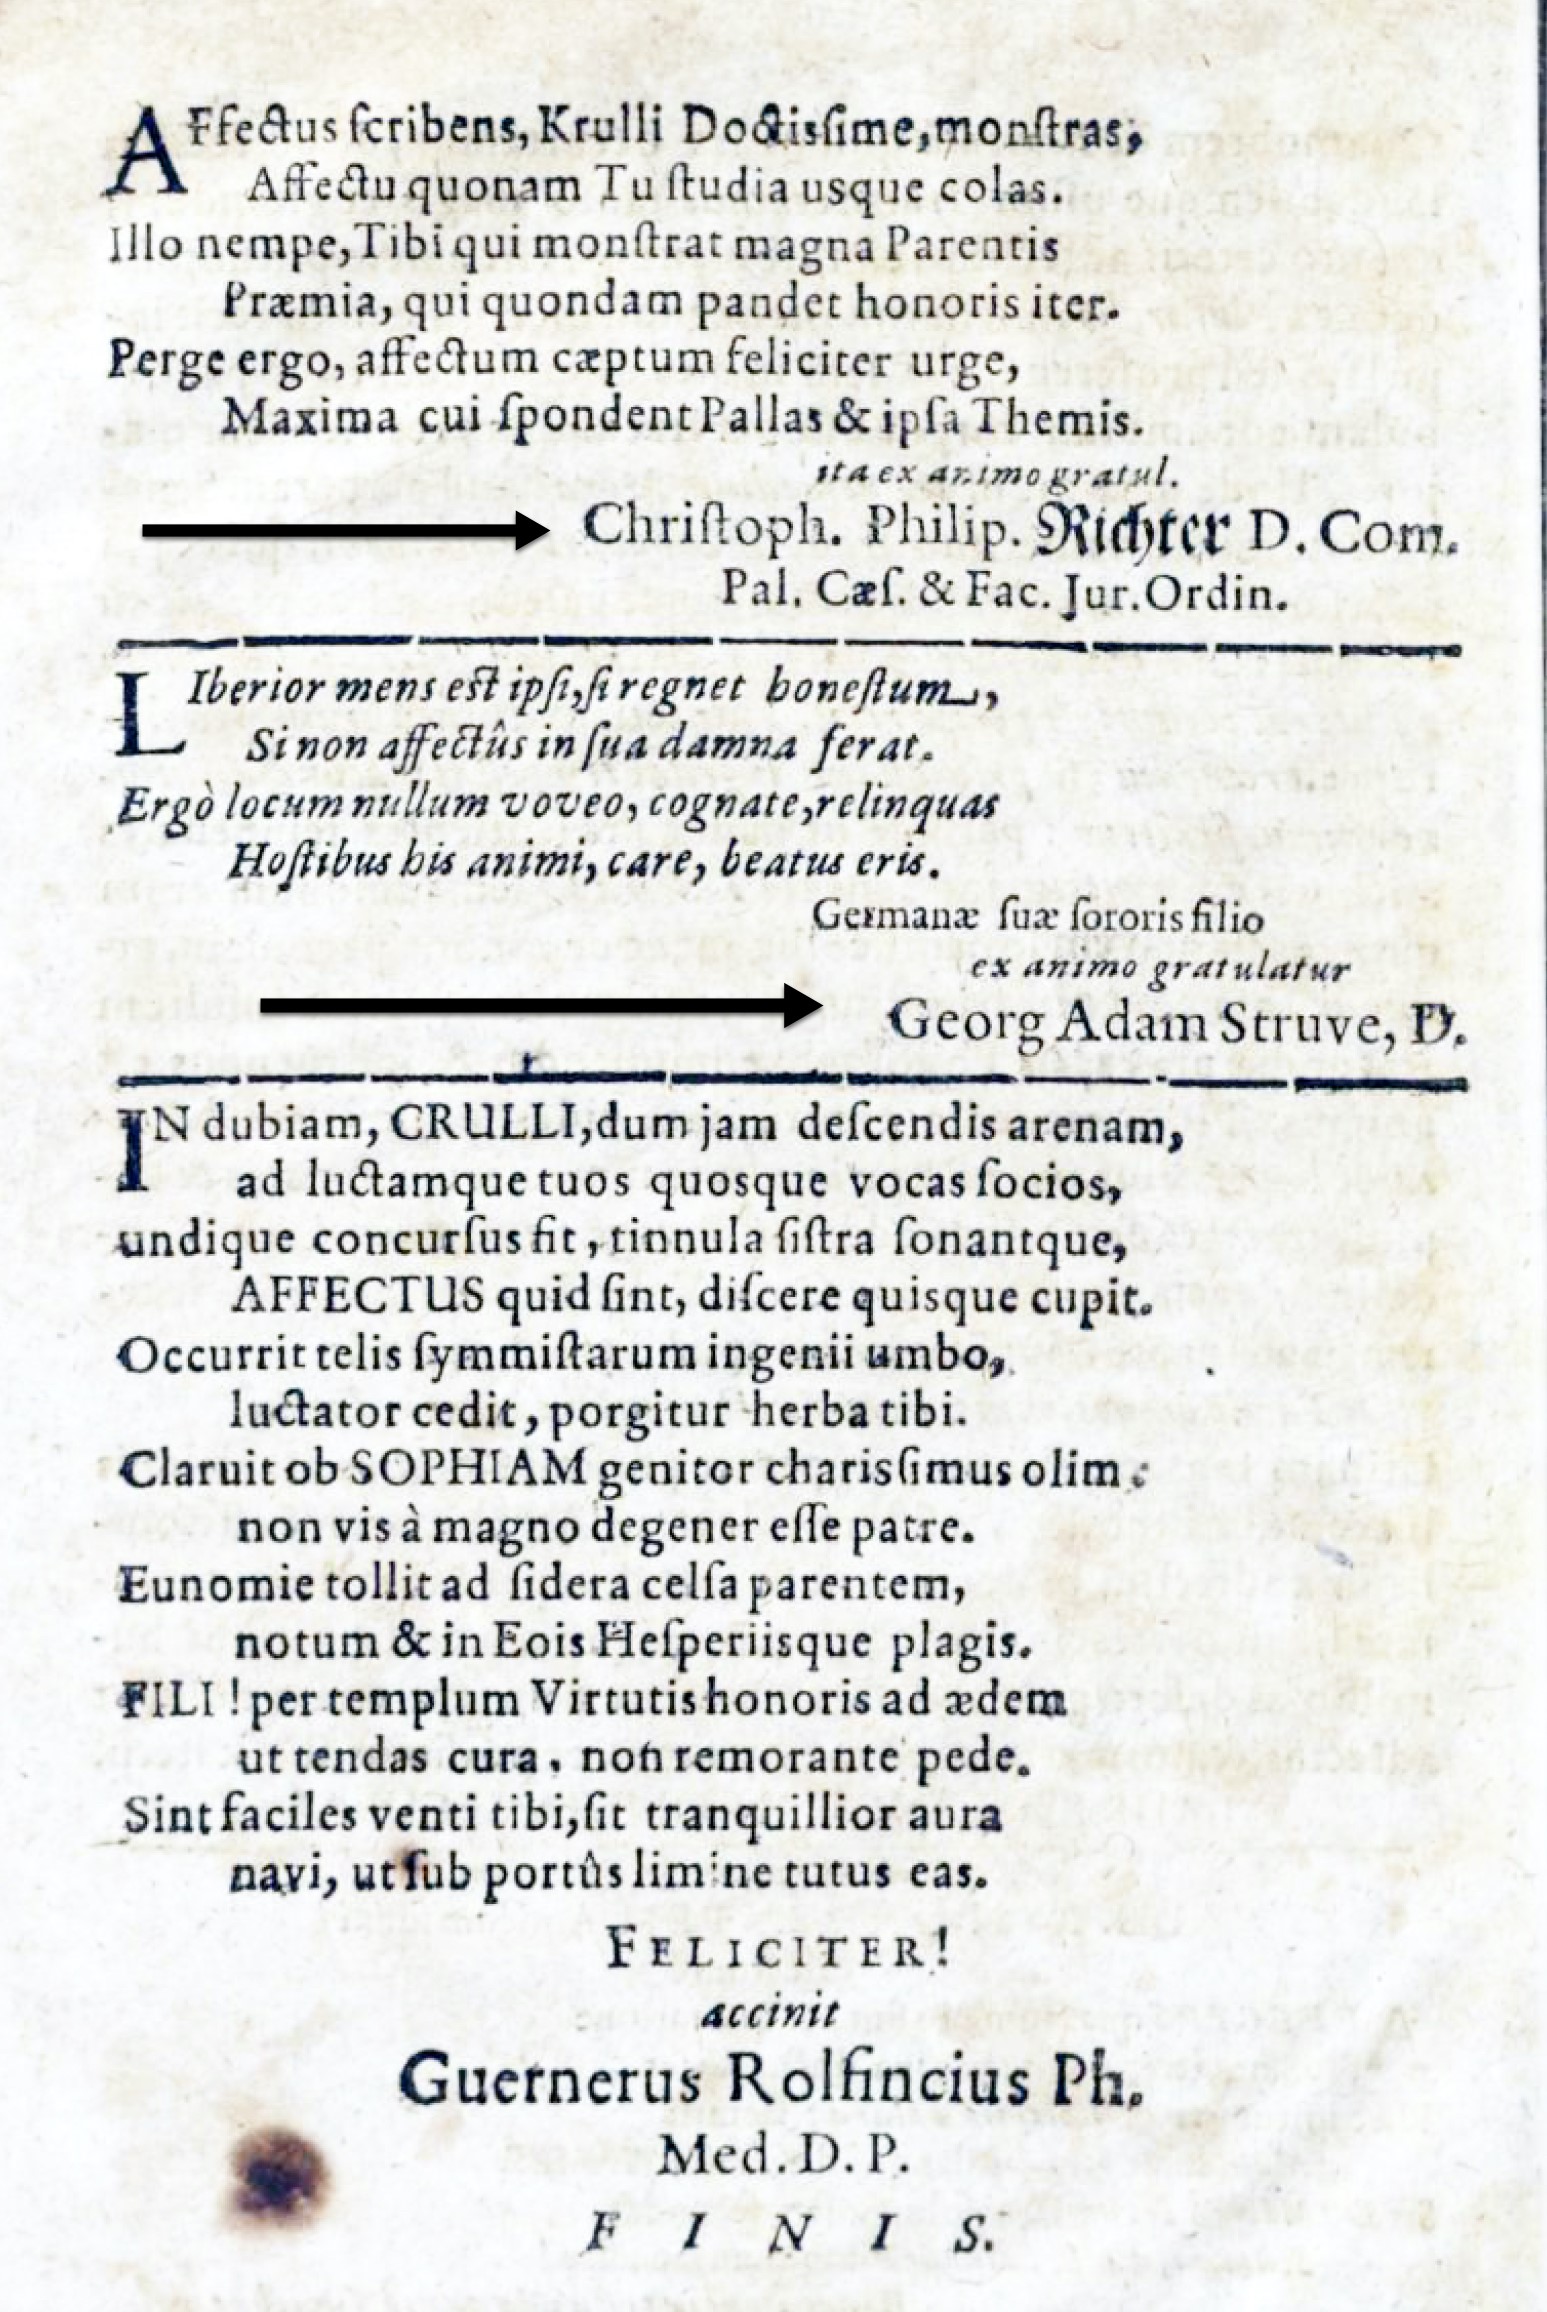 AFfectus ſcribens, Krulli Doctisſime, monſtras,
Affectu quonam Tu ſtudia usque colas.
Illo nempe, Tibi qui monſtrat magna Parentis
Præmia, qui quondam pandet honoris iter.
Perge ergo, affectum cæptum feliciter urge,
Maxima cui ſpondent Pallas & ipſa Themis.
ita ex animo gratul.
Chriſtoph. Philip. Richter D. Com.
Pal. Cæſ. & Fac. Jur. Ordin.
LIberior mens est ipſi, ſi regnet honeſtum,
Si non affectûs in ſua damna ferat.
Ergò locum nullum voveo, cognate, relinquas
Hoſtibus his animi, care, beatus eris.
Germanæ ſuæ ſororis filio
ex animo gratulatur
Georg Adam Struve, D.
IN dubiam, CRULLI, dum jam deſcendis arenam,
ad luctamque tuos quosque vocas ſocios,
undique concurſus fit, tinnula ſiſtra ſonantque,
AFFECTUS quid ſint, diſcere quisque cupit.
Occurrit telis ſymmiſtarum ingenii umbo,
luctator cedit, porgitur herba tibi.
Claruit ob SOPHIAM genitor charisſimus olim:
non vis à magno degener eſſe patre.
Eunomie tollit ad ſidera celſa parentem,
notum & in Eois Heſperiisque plagis.
FILI! per templum Virtutis honoris ad ædem
ut tendas cura, non remorante pede.
Sint faciles venti tibi, ſit tranquillior aura
navi, ut ſub portûs limine tutus eas.
FELICITER!
accinit
Guernerus Rolfincius Ph.
Med. D. P.
F I N I S.